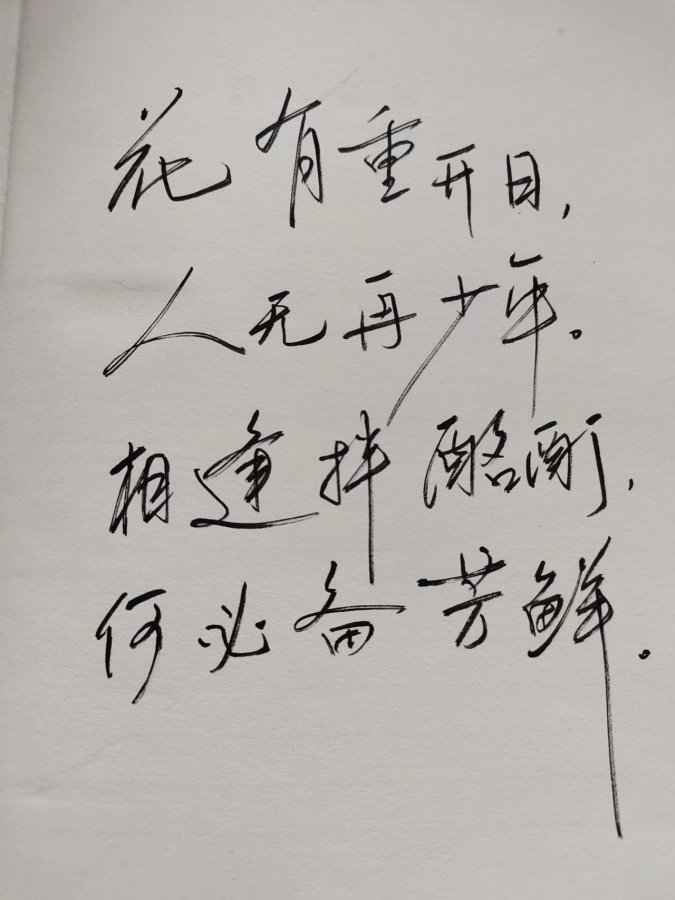 花有重开日，
人无再少年。
相逢拌酩酊，
何必备芳鲜。